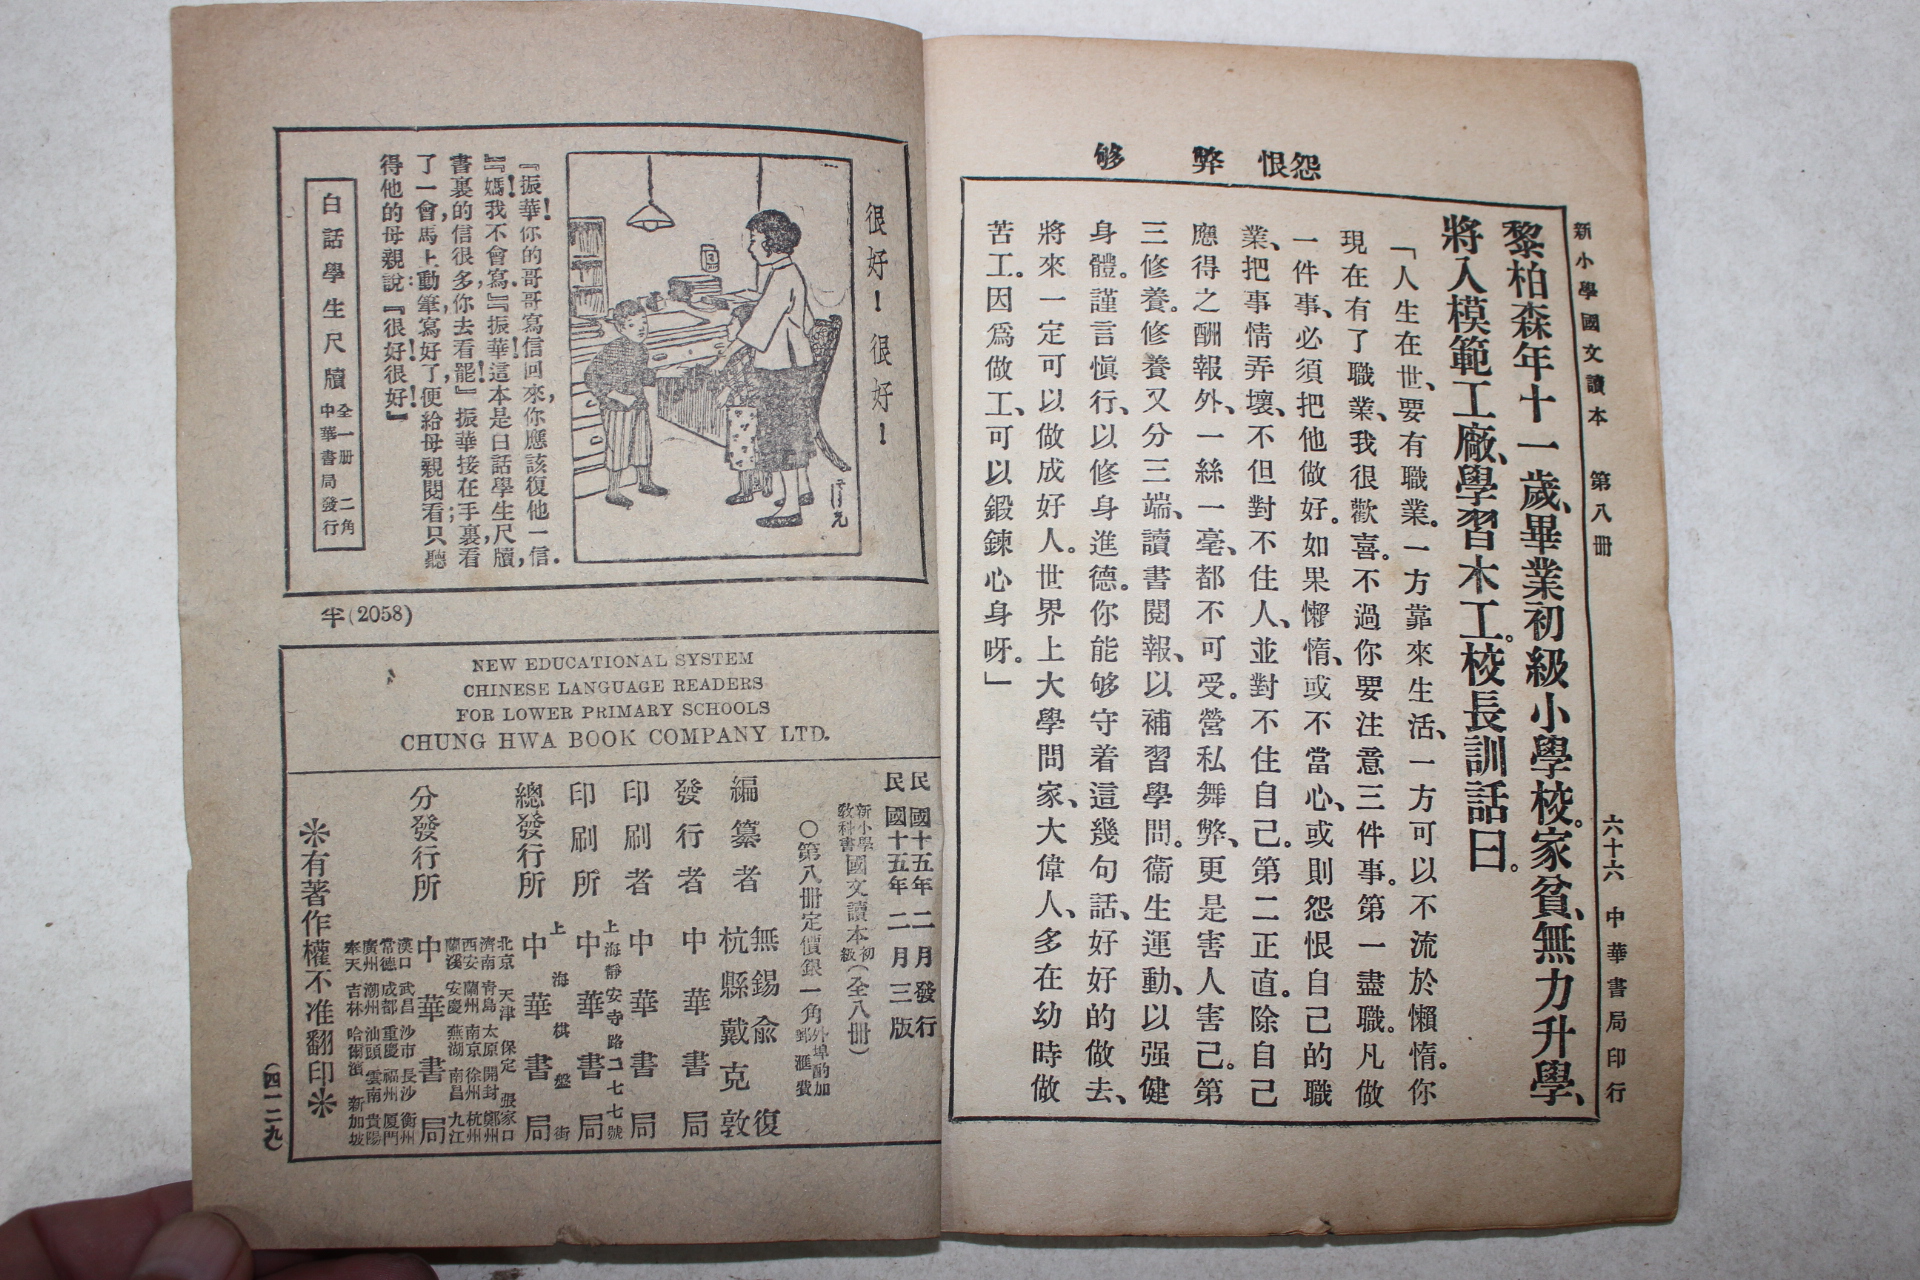 新小學國文讀本　第八冊　六十六　中華書局印行
怨恨　弊　够
黎柏森年十一歲、畢業初級小學校。家貧、無力升學、
將入模範工廠、學習木工。校長訓話曰。
「人生在世、要有職業。一方靠來生活、一方可以不流於懶惰。你
現在有了職業、我很歡喜。不過你要注意三件事。第一盡職。凡做
一件事、必須把他做好。如果懶惰、或不當心、或則怨恨自己的職
業、把事情弄壞、不但對不住人、並對不住自己。第二正直。除自己
應得之酬報外、一絲一毫、都不可受。營私舞弊、更是害人害己。第
三修養。修養又分三端、讀書閱報、以補習學問。衞生運動、以强健
身體。謹言愼行、以修身進德。你能够守着這幾句話、好好的做去、
將來一定可以做成好人。世界上大學問家、大偉人、多在幼時做
苦工。因爲做工、可以鍛鍊心身呀。」
很好！很好！
『振華！你的哥哥寫信回來，你應該復他一信．
『『媽！我不會寫．』『振華！這本是白話學生尺牘，
書裏的信很多，你去看罷！』振華接在手裏看
了一會，馬上動筆，寫好了，便給母親閱看；只聽
得他的母親說：『很好！很好！』
白話學生尺牘　全一册　二角
中華書局發行
半(2058)
NEW EDUCATIONAL SYSTEM
CHINESE LANGUAGE READERS
FOR LOWER PRIMARY SCHOOLS
CHUNG HWA BOOK COMPANY LTD.
民國十五年二月發行
民國十五年二月三版
新小學教科書國文讀本初級（全八冊）
○第八冊定價銀一角 外埠酌加郵滙費
編纂者　無錫俞復　杭縣戴克敦
發行者　中華書局
印刷者　中華書局
印刷所　上海靜安寺路二七七號　中華書局
總發行所　上海棋盤街　中華書局
分發行所　中華書局
北京 天津 保定 張家口
濟南 青島 太原 開封 鄭州
西安 蘭州 南京 徐州 杭州
蘭溪 安慶 蕪湖 南昌 九江
漢口 武昌 沙市 長沙 衡州
常德 成都 重慶 福州 厦門
廣州 潮州 汕頭 雲南 貴陽
奉天 吉林 哈爾濱 新加坡
※有著作權不准翻印※
（四一二九）